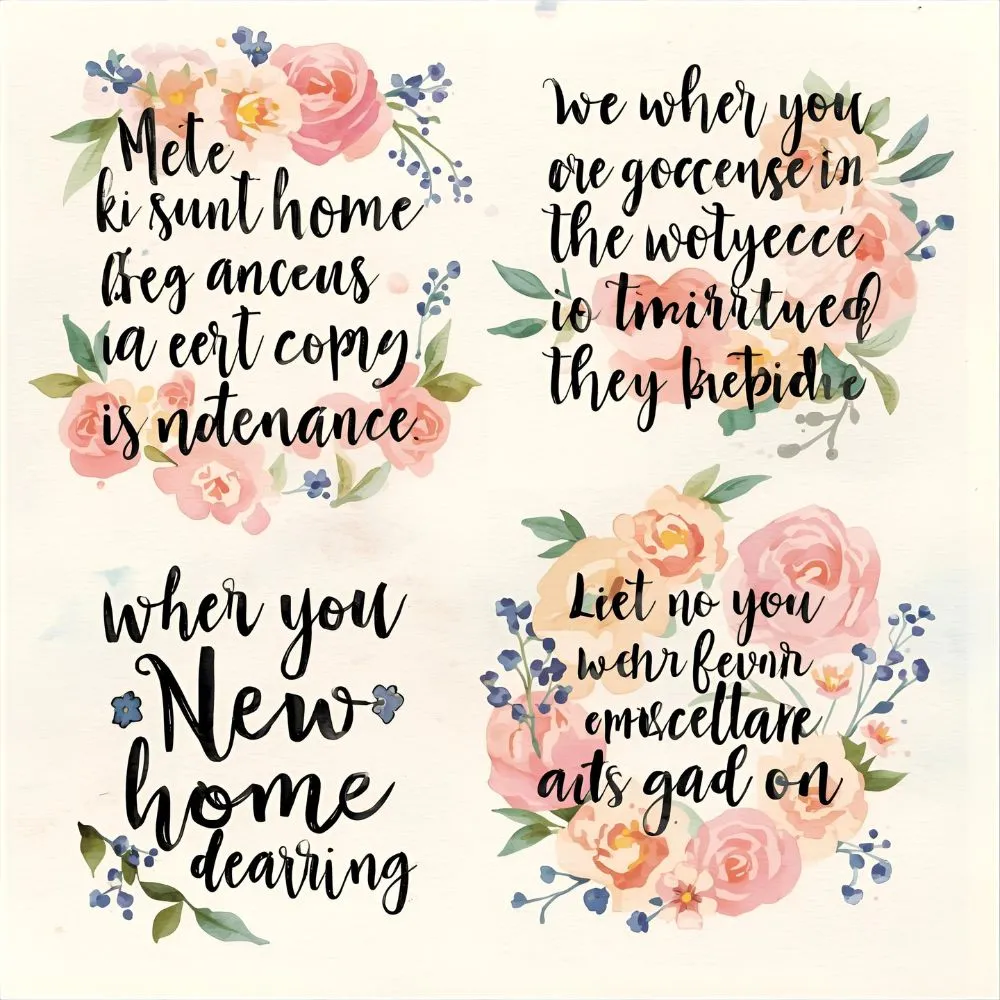 Mete
ki sunt home
Breg anceus
ia eert copny
is ndtenance.
We wher you
are goccense in
the wotyecce
io tmirrtued
they bietpidie
wher you
New
home
dearring
Liet no you
wehr fevnir
emiscellare
aits gad on